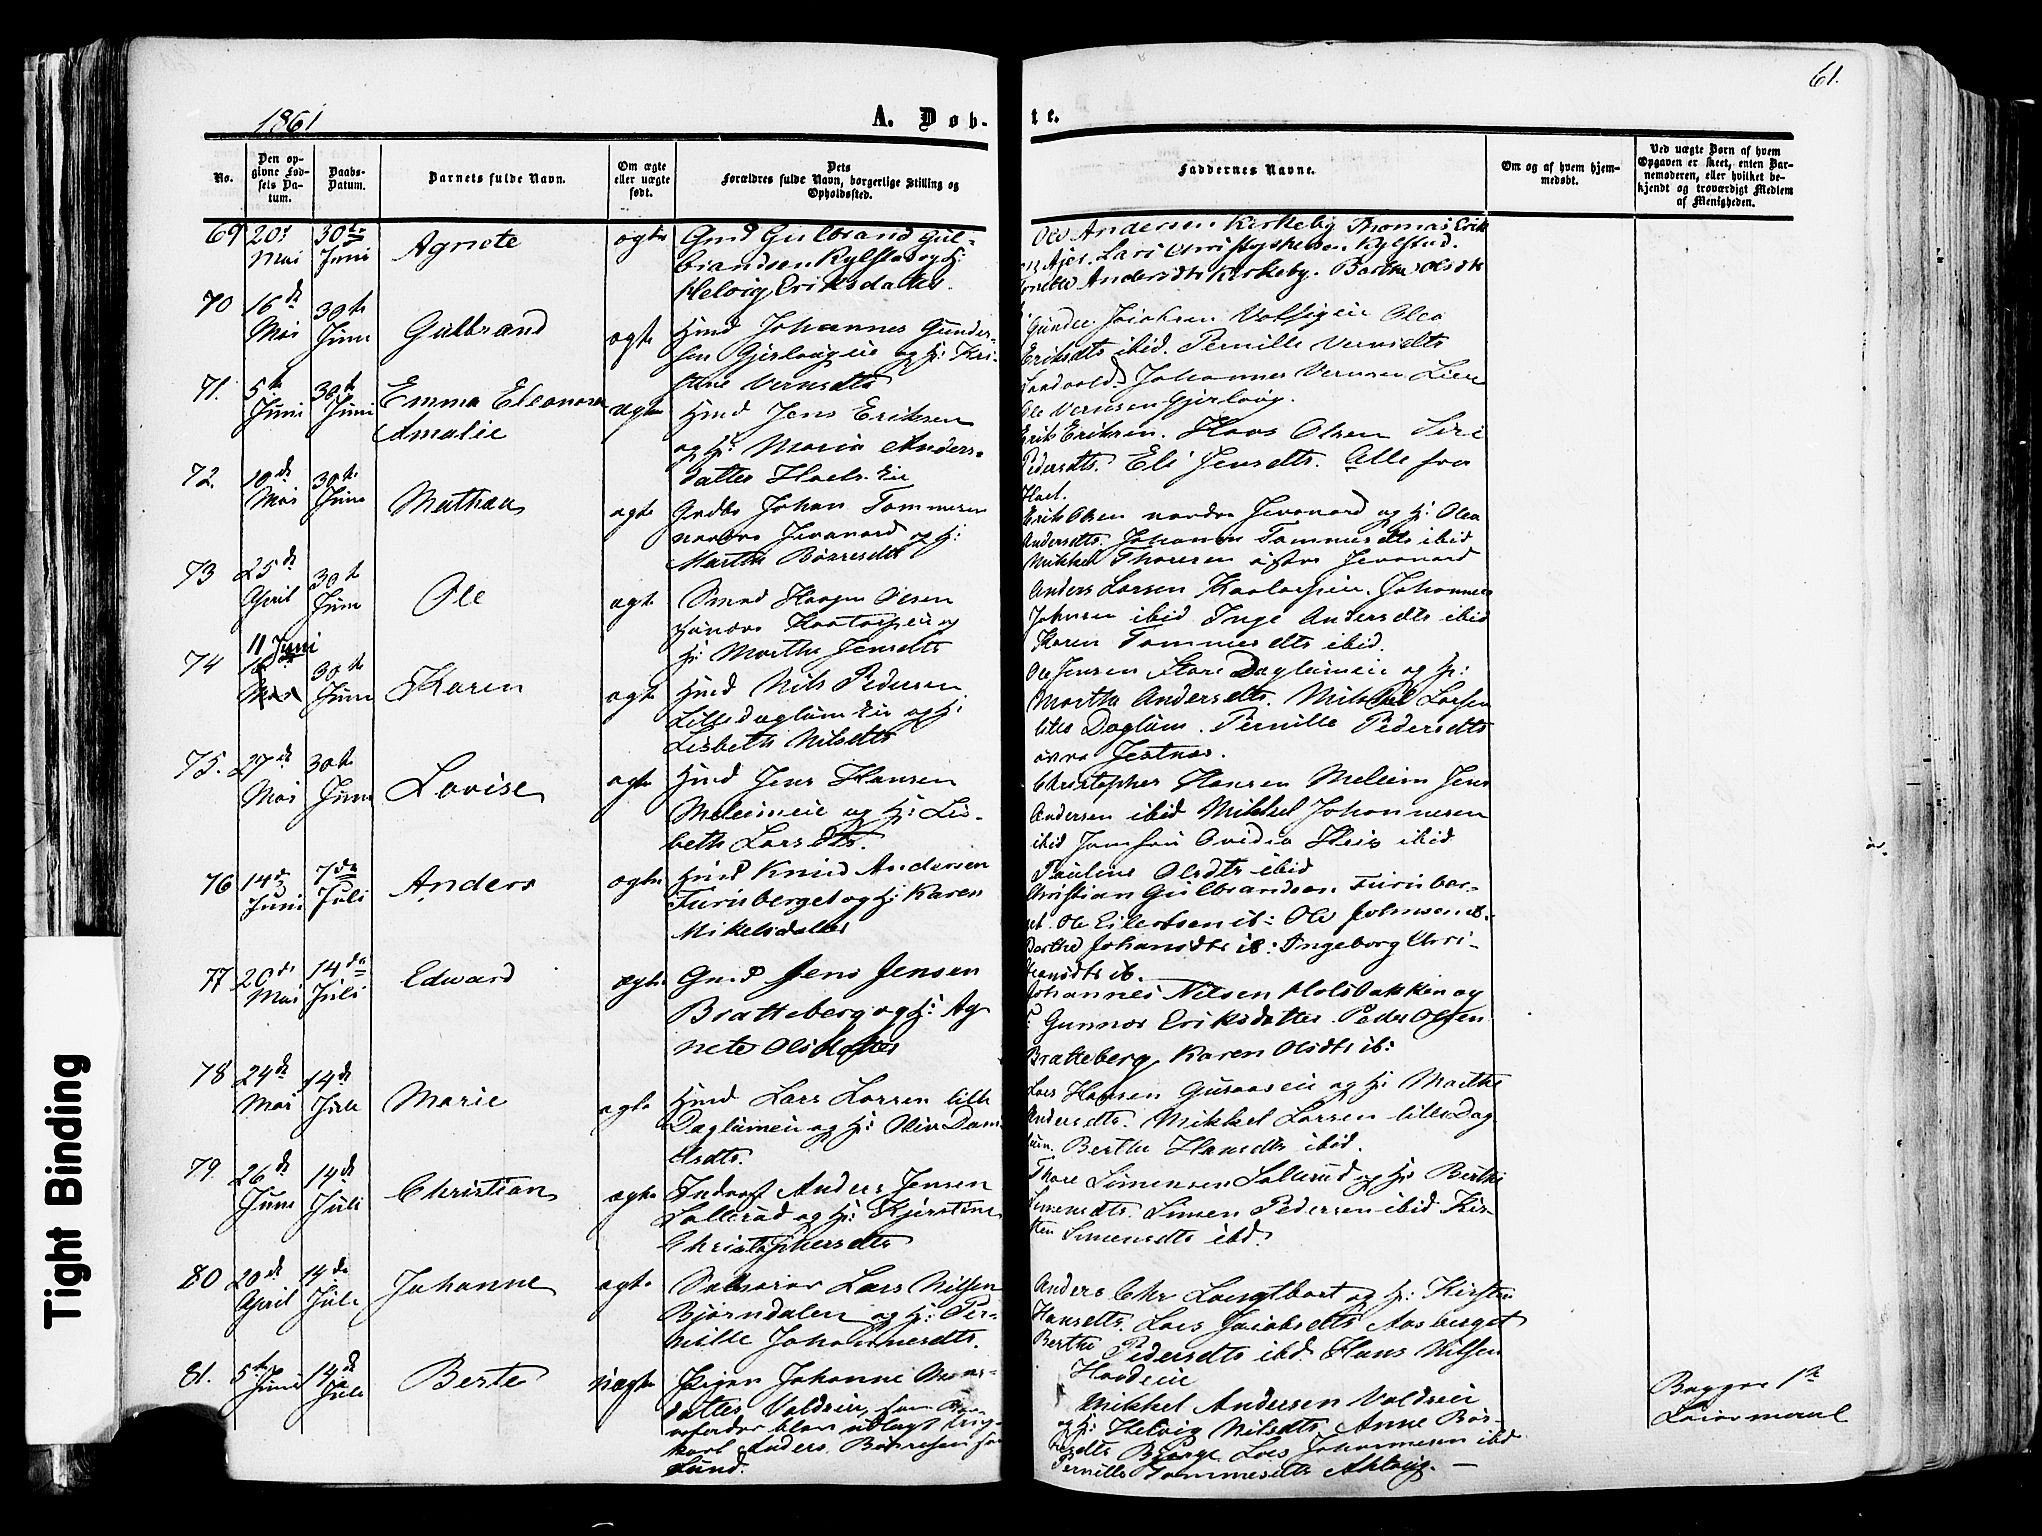 61.
1861
A. Døb-
te.
No.
Den op-
givne Fød-
sels Da-
tum.
Daabs-
Datum.
Barnets fulde Navn.
Om ægte
eller uægte
født.
Dets
Forældres fulde Navn, borgerlige Stilling og
Opholdssted.
Faddernes Navne.
Om og af hvem hjem-
medøbt.
Ved uægte Børn af hvem
Opgaven er skeet, enten Bar-
nemoderen, eller hvilket be-
kjendt og troværdigt Medlem
af Menigheden.
69 20de Mai 30te Juni Agnete ægte Gmd Gulbrand Gul-
brandsen Rylstad og H:
Helvig Eriksdatter.
Ole Andersen Kirkeby Thomas Erik
Lars Christophersen Rylstad.
Andersdtr Kirkeby. Berthe Olsdtr
70 16de Mai 30te Juni Gulbrand ægte Hmd Johannes Gunder-
sen Gjerløugeie og H: Kri-
stine Vernsdtr
Eriksdtr ibid. Pernille Vernsdtr
Johannes Vernsen Lier
Ole Vernsen Gjerløug.
71. 5te Juni 30te Juni Emma Eleonora
Amalie
ægte Hmd Jens Eriksen
og H: Maria Anders-
datter Hoels Eie
Erik Eriksen. Hans Olsen Siri
Pedersdtr. Eli Jensdtr. Alle fra
Hoel.
72. 10de Mai 30te Juni Mathea ægte Johan Tommesen
nordre Jevanord og H:
Martha Børresdtr
Erik Olsen nordre Jevanord og H: Olea
Andersdtr. Johanne Tommesdtr ibid
Mikkel Thoresen østre Jevanord
73 25de April 30te Juni Ole ægte Smed Haagen Olsen
søndre Kaatorpeie og
H: Marthe Jensdtr
Anders Larsen Kaatorpeie. Johannes
Johnsen ibid Inge Andersdtr ibid
Karen Tommesdtr ibid.
74 11 Juni
30te Juni Karen ægte Hmd Nils Pedersen
Lille Daglum Eie og H:
Lisbeth Nilsdtr
Ole Jensen Store Daglumeie og H:
Marthe Andersdtr. Mikkel Larsen
lille Daglum. Pernille Pedersdtr
øvre Jestnes.
75. 27de Mai 30te Juni Lovise ægte Hmd Jens Hansen
Meleimeie og H: Lis-
beth Larsdtr.
Christopher Hansen Meleim Jens
Andersen ibid Mikkel Johannesen
ibid Jomfru Ovidia ibid
Pauline Olsdtr ibid
76 14de Juni 7de Juli Anders ægte Hmd Knud Andersen
Furuberget og H: Karen
Mikelsdatter
Christian Gulbrandsen Furuber-
get. Ole Eilertsen ib: Ole Johnsen ib:
Berthe Johansdtr ib: Ingeborg Chri-
stiansdtr ib.
77 20de Mai 14de Juli Edward ægte Gmd Jens Jensen
Bratteberg og H: Ag
nete Olsdatter
Johannes Nilsen Holsbakken og
H: Gunnor Eriksdatter. Peder Olsen
Bratteberg Karen Olsdtr ib:
78 24de Mai 14de Juli Marie ægte Hmd Lars Larsen lille
Daglumeie og H: Oliv Dani
elsdtr.
Lars Hansen og H: Marthe
Andersdtr. Mikkel Larsen lille Dag
lum. Berthe Hansdtr ibid.
79. 26de Juni 14de Juli Christian ægte Inderst Anders Jensen
Sollerud og H: Kjerstine
Christophersdtr
Thore Simensen Sollerud og H: Berthe
Simensdtr. Simen Pedersen ibid Kir-
sten Simensdtr ibd.
80 20de April 14de Juli Johanne ægte Lars Nilsen
Bjørndalen og H: Per-
nille Johannesdtr.
Anders Chr og H: Kirsten
Hansdtr. Lars Jacobsdtr Aasberget
Berthe Pedersdtr ibd. Hans Nilsen
81. 5te Juni 14de Juli Berte uægte Pigen Johanne Mons-
datter Voldseie, som Bar-
nefader blev udlagt Ung-
karl Anders Børresen fra
Lund.
Mikkel Andersen Voldseie
og H: Helvig Nilsdtr. Anne Bør-
resdtr Lars Johannesen ibd.
Pernille Tommesdtr
Begges 1ste
Leiermaal
Tight Binding